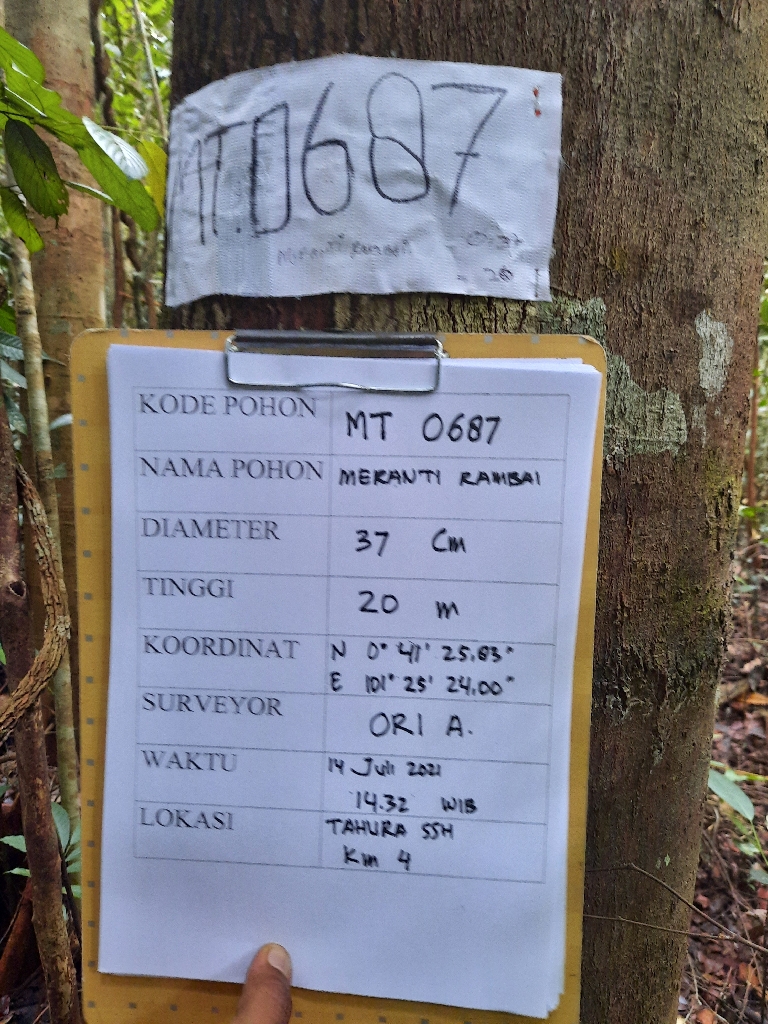 MT.0687
Meranti Rambai - 0.37
- 20
KODE POHON MT 0687
NAMA POHON MERANTI RAMBAI
DIAMETER 37 Cm
TINGGI 20 m
KOORDINAT N 0° 41' 25.83"
E 101° 25' 24.00"
SURVEYOR ORI A.
WAKTU 14 Juli 2021
14.32 WIB
LOKASI TAHURA SSH
Km 4